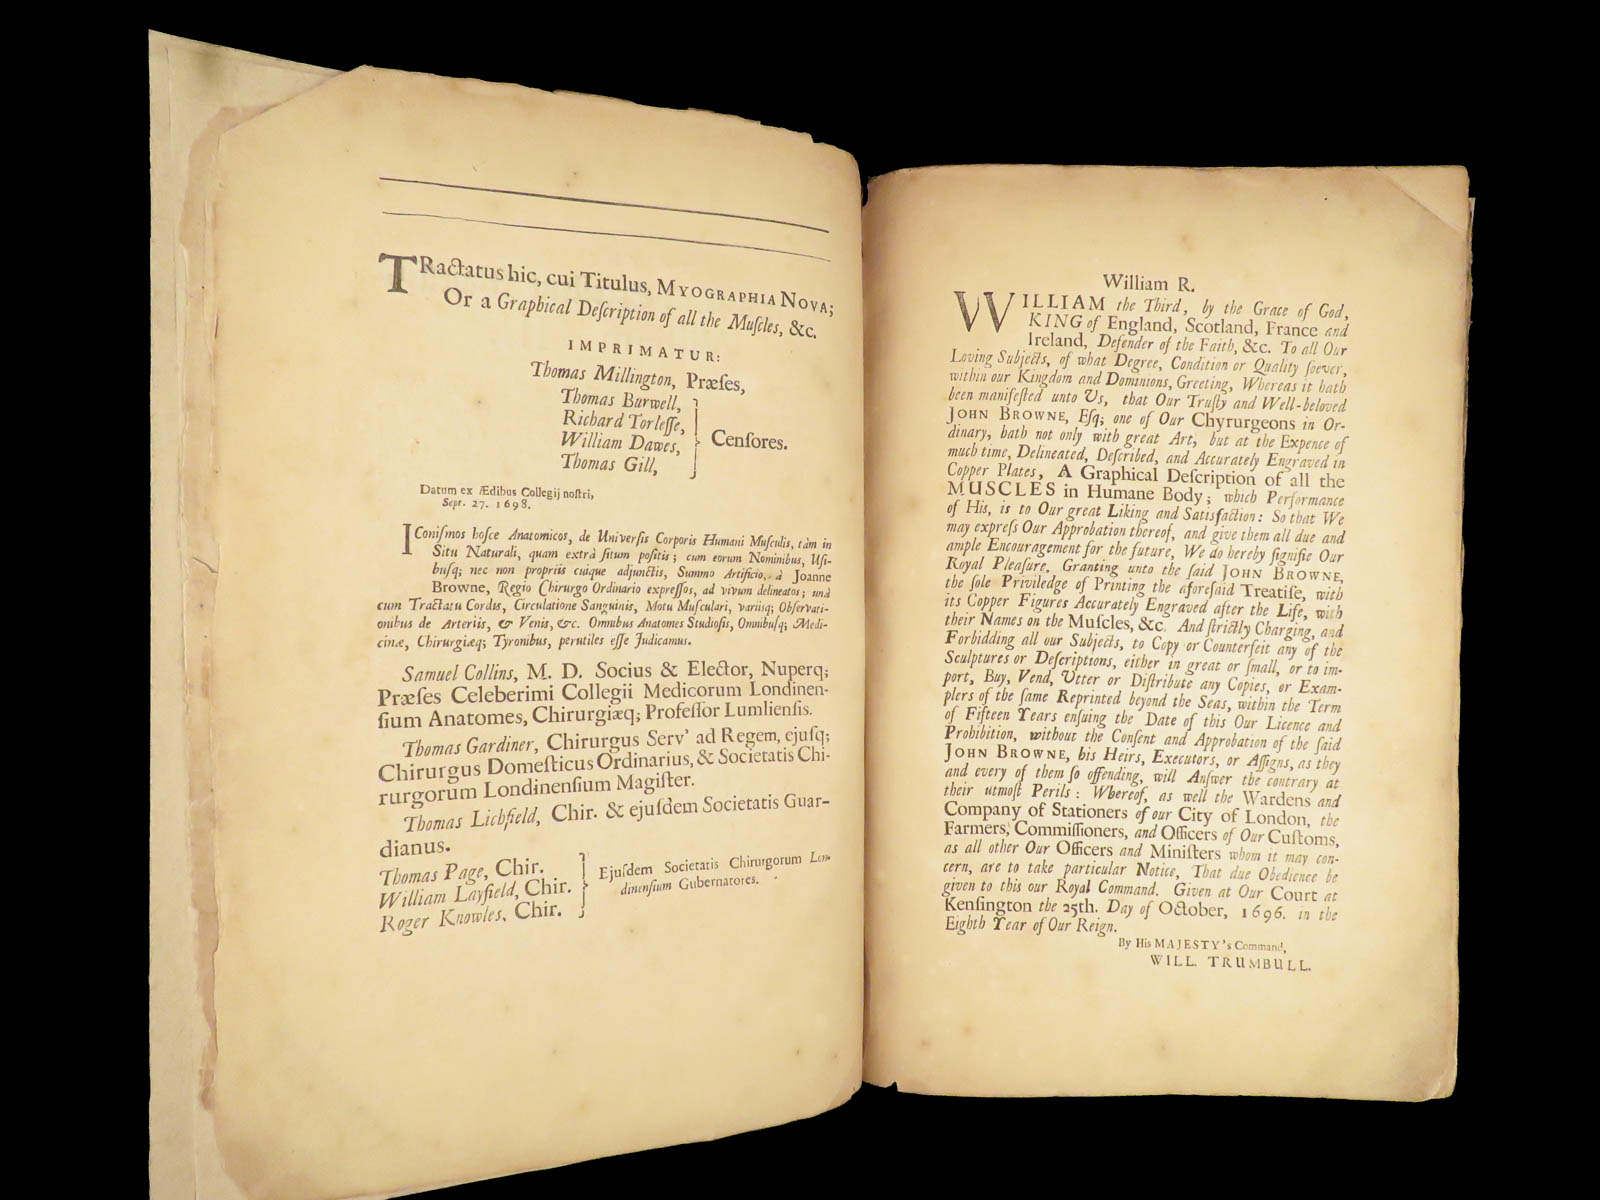 TRactatus hic, cui Titulus, MYOGRAPHIA NOVA;
Or a Graphical Deſcription of all the Muſcles, &c.
IMPRIMATUR:
Thomas Millington, Præſes,
Thomas Burwell,
Richard Torleſſe,
William Dawes,
Thomas Gill,
Cenſores.
Datum ex Ædibus Collegij noſtri,
Sept. 27. 1698.
IConiſmos hoſce Anatomicos, de Univerſis Corporis Humani Muſculis, tàm in
Situ Naturali, quam extrà ſitum poſitis; cum eorum Nominibus, Uſi-
buſq; nec non propriis cuique adjunctis, Summo Artificio, à Joanne
Browne, Regio Chirurgo Ordinario expreſſos, ad vivum delineatos; unà
cum Tractatu Cordis, Circulatione Sanguinis, Motu Muſculari, variiſq; Obſervati-
onibus de Arteriis, & Venis, &c. Omnibus Anatomes Studioſis, Omnibuſq; Medi-
cinæ, Chirurgiæq; Tyronibus, perutiles eſſe Judicamus.
Samuel Collins, M. D. Socius & Elector, Nuperq;
Præſes Celeberimi Collegii Medicorum Londinen-
ſium Anatomes, Chirurgiæq; Profeſſor Lumlienſis.
Thomas Gardiner, Chirurgus Serv' ad Regem, ejuſq;
Chirurgus Domeſticus Ordinarius, & Societatis Chi-
rurgorum Londinenſium Magiſter.
Thomas Lichfield, Chir. & ejuſdem Societatis Guar-
dianus.
Thomas Page, Chir.
William Layfield, Chir.
Roger Knowles, Chir.
Ejuſdem Societatis Chirurgorum Lon-
dinenſium Gubernatores.
William R.
WILLIAM the Third, by the Grace of God,
KING of England, Scotland, France and
Ireland, Defender of the Faith, &c. To all Our
Loving Subjects, of what Degree, Condition or Quality ſoever,
within our Kingdom and Dominions, Greeting, Whereas it hath
been manifeſted unto Us, that Our Truſty and Well-beloved
JOHN BROWNE, Eſq; one of Our Chyrurgeons in Or-
dinary, hath not only with great Art, but at the Expence of
much time, Delineated, Deſcribed, and Accurately Engraved in
Copper Plates, A Graphical Deſcription of all the
MUSCLES in Humane Body; which Performance
of His, is to Our great Liking and Satisfaction: So that We
may expreſs Our Approbation thereof, and give them all due and
ample Encouragement for the future, We do hereby ſignifie Our
Royal Pleaſure, Granting unto the ſaid JOHN BROWNE,
the ſole Priviledge of Printing the aforeſaid Treatiſe, with
its Copper Figures Accurately Engraved after the Life, with
their Names on the Muſcles, &c. And ſtrictly Charging, and
Forbidding all our Subjects, to Copy or Counterfeit any of the
Sculptures or Deſcriptions, either in great or ſmall, or to im-
port, Buy, Vend, Utter or Diſtribute any Copies, or Exam-
plers of the ſame Reprinted beyond the Seas, within the Term
of Fifteen Years enſuing the Date of this Our Licence and
Prohibition, without the Conſent and Approbation of the ſaid
JOHN BROWNE, his Heirs, Executors, or Aſſigns, as they
and every of them ſo offending, will Anſwer the contrary at
their utmoſt Perils: Whereof, as well the Wardens and
Company of Stationers of our City of London, the
Farmers, Commiſſioners, and Officers of Our Cuſtoms,
as all other Our Officers and Miniſters whom it may con-
cern, are to take particular Notice, That due Obedience be
given to this our Royal Command. Given at Our Court at
Kenſington the 25th. Day of October, 1696. in the
Eighth Year of Our Reign.
By His MAJESTY's Command,
WILL. TRUMBULL.